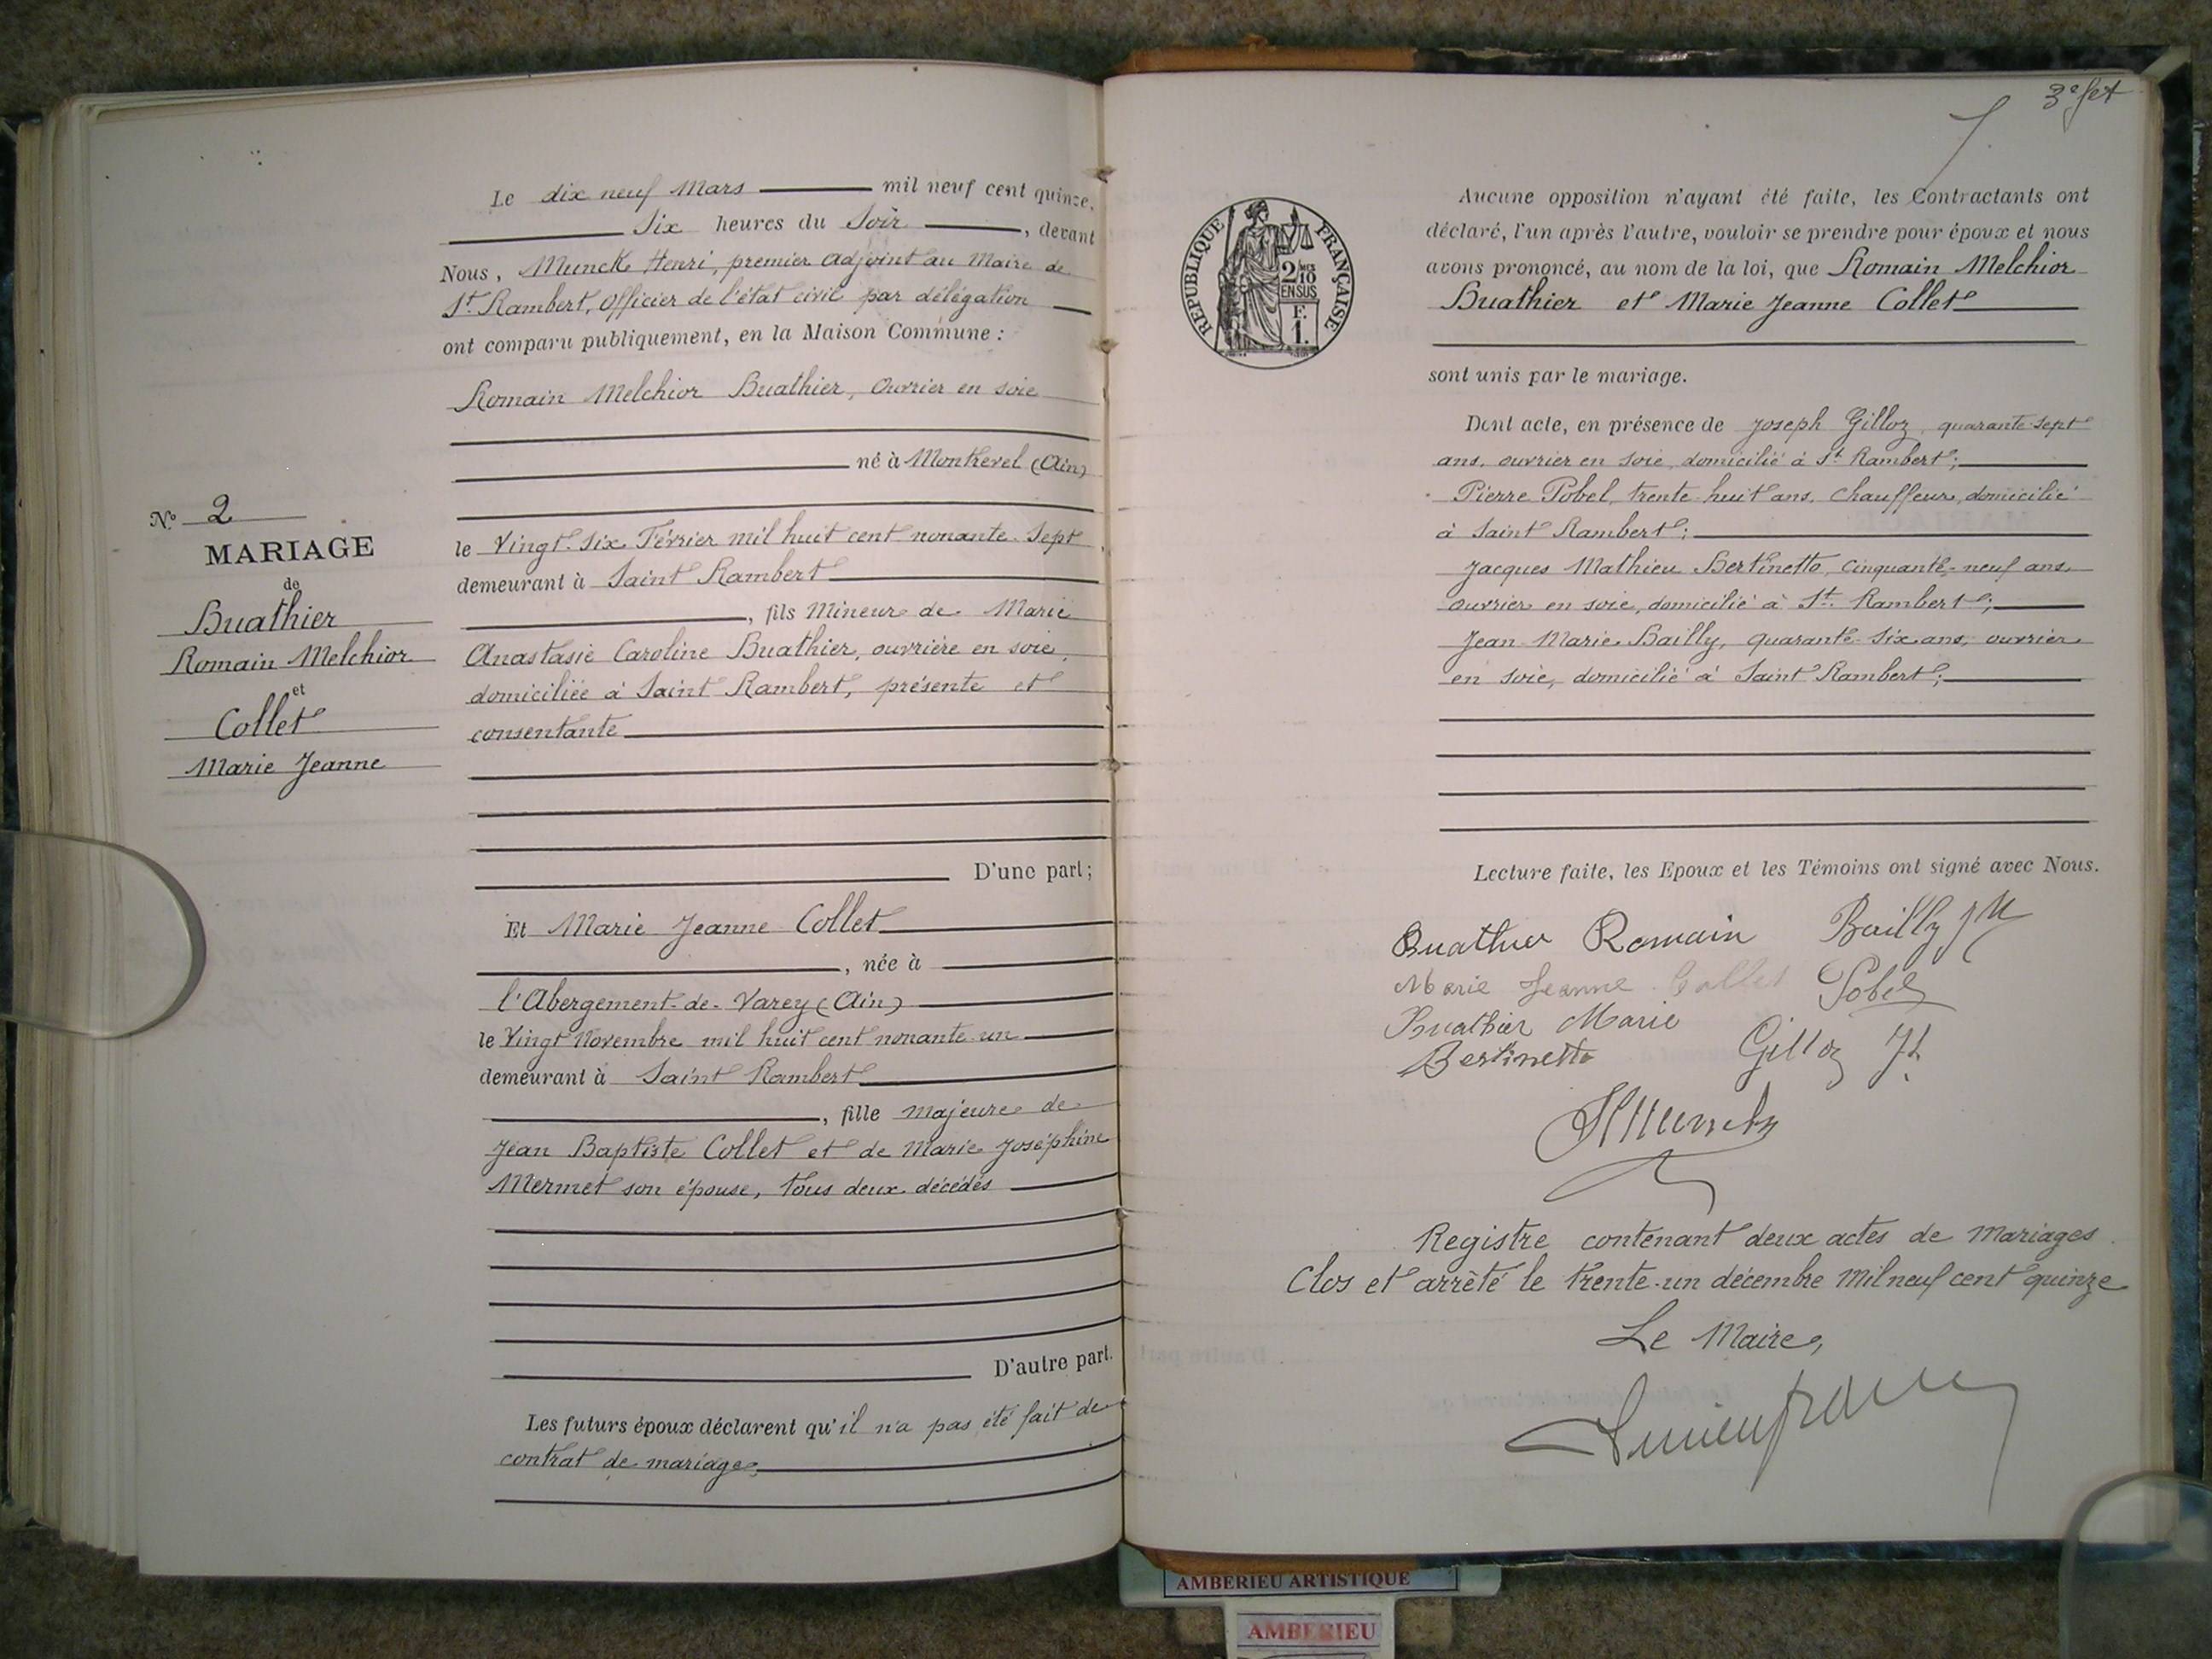 Le dix neuf Mars mil neuf cent quinze,
Six heures du Soir, devant
Nous, Munck Henri, premier adjoint au Maire de
St. Rambert, Officier de l'état civil par délégation
ont comparu publiquement, en la Maison Commune :
Romain Melchior Buathier, Ouvrier en soie
né à Montrevel (Ain)
N° 2
MARIAGE
de
Buathier
Romain Melchior
et
Collet
Marie Jeanne
le Vingt-Six Février mil huit cent nonante-Sept
demeurant à Saint Rambert
, fils Mineur de Marie
Anastasie Caroline Buathier, ouvrière en soie,
domiciliée à Saint Rambert, présente et
consentante
D'une part;
Et Marie Jeanne Collet
, née à
l'Abergement-de-Varey (Ain)
le Vingt Novembre mil huit cent nonante-un
demeurant à Saint Rambert
, fille majeure de
Jean Baptiste Collet et de Marie Joséphine
Mermet son épouse, tous deux décédés
D'autre part.
Les futurs époux déclarent qu'il n'a pas été fait de
contrat de mariage
3e fet
RÉPUBLIQUE FRANÇAISE
2/10
EN SUS
F.
1.
Aucune opposition n'ayant été faite, les Contractants ont
déclaré, l'un après l'autre, vouloir se prendre pour époux et nous
avons prononcé, au nom de la loi, que Romain Melchior
Buathier et Marie Jeanne Collet
sont unis par le mariage.
Dont acte, en présence de Joseph Gilloz, quarante-sept
ans, ouvrier en soie, domicilié à St. Rambert;
Pierre Pobel, trente-huit ans, Chauffeur, domicilié
à Saint Rambert;
Jacques Mathieu Bertinetto, cinquante-neuf ans,
ouvrier en soie, domicilié à St. Rambert;
Jean-Marie Bailly, quarante-six ans, ouvrier
en soie, domicilié à Saint Rambert;
Lecture faite, les Epoux et les Témoins ont signé avec Nous.
Buathier Romain Bailly JM
Marie Jeanne Collet Pobel
Buathier Marie
Bertinetto Gilloz Jh
HMunck
Registre contenant deux actes de Mariages
Clos et arrêté le trente-un décembre Mil neuf cent quinze
Le Maire,
AMBERIEU ARTISTIQUE
AMBERIEU